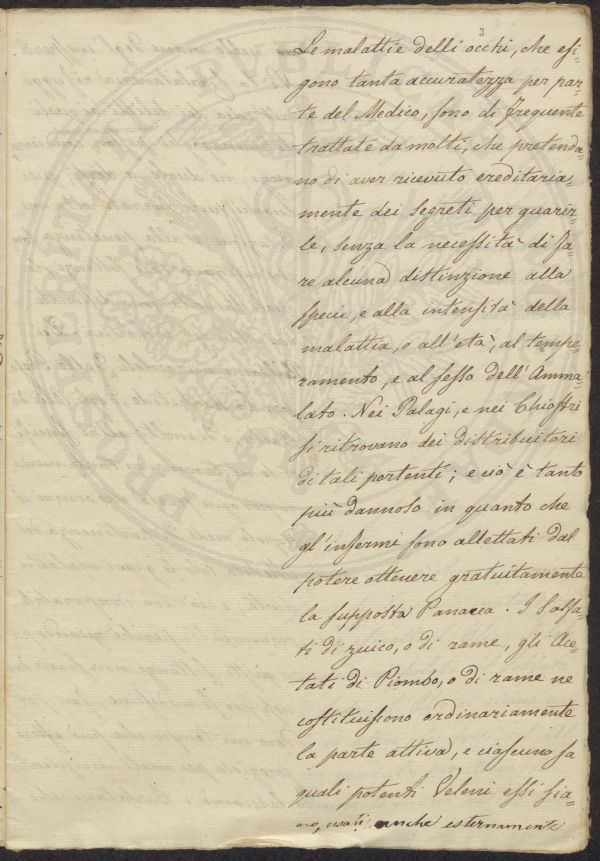 3
Le malattie delli occhi, che esi-
gono tanta accuratezza per par-
te del Medico, sono di frequente
trattate da molti, che pretenda-
no di aver ricevuto ereditaria-
mente dei segreti per guarir-
le, senza la necessità di fa-
re alcuna distinzione alla
specie, e alla intensità della
malattia, o all'età, al tempe-
ramento, e al sesso dell'Amma-
lato. Nei Palagi, e nei Chiostri
si ritrovano dei distribuitori
di tali portenti; e ciò è tanto
più dannoso in quanto che
gl'infermi sono allettati dal
potere ottenere gratuitamente
la supposta Panacea. I Solfa-
ti di zinco, o di rame, gli Ace-
tati di Piombo, o di rame ne
costituiscono ordinariamente
la parte attiva, e ciascuno sa
quali potenti Veleni essi sia-
no, usati anche esternamente